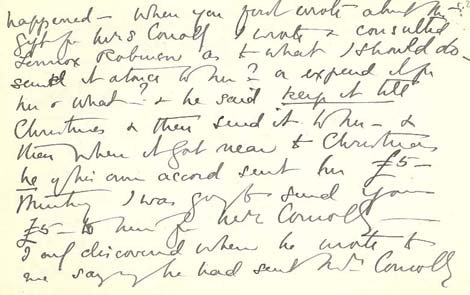 happened – when you first wrote about the
gift for Mrs Conolly I wrote & consulted
Lennox Robinson as to what I should do –
send it at once to her? or expend it for
her or what? & he said keep it till
Christmas & then send it to her – &
then when it got near to Christmas
he of his own accord sent her £5 –
thinking I was going to send your
£5 – to him for Mrs Conolly –
I only discovered when he wrote to
me saying he had sent Mrs Conolly